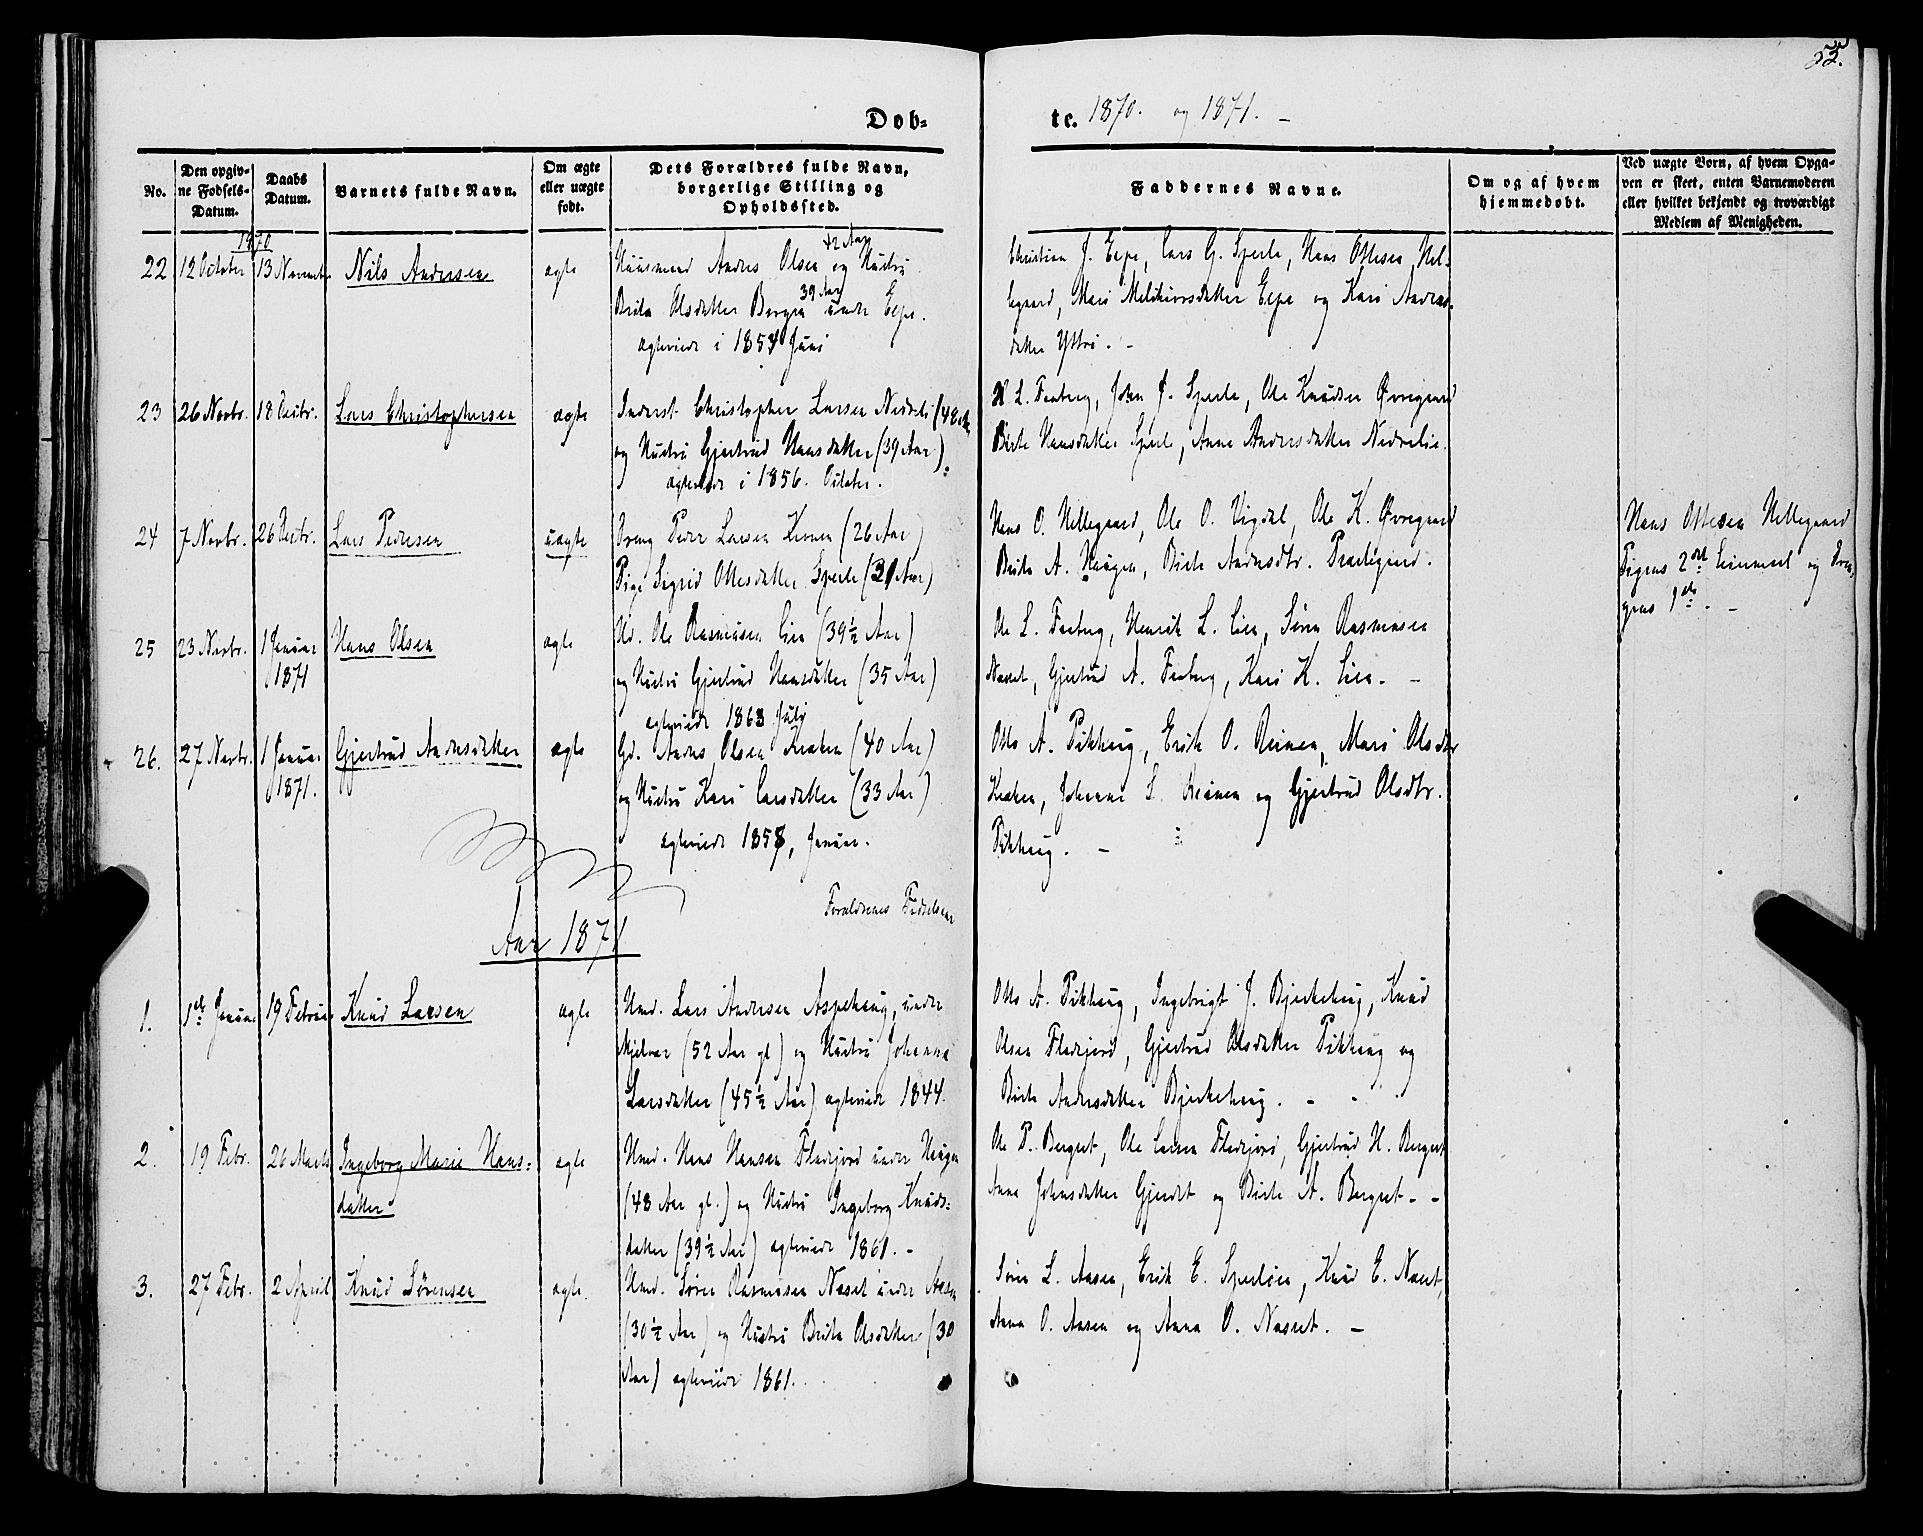 55.
Døb-
te. 1870. og 1871. -
No.
Den opgiv-
ne Fødsels-
Datum.
Daabs
Datum.
Barnets fulde Navn.
Om ægte
eller uægte
født.
Dets Forældres fulde Navn,
borgerlige Stilling og
Opholdssted.
Faddernes Navne.
Om og af hvem
hjemmedøbt.
Ved uægte Børn, af hvem Opga-
ven er skeet, enten Barnemoderen
eller hvilket bekjendt og troværdigt
Medlem af Menigheden.
1870
22 12 October 13 Novembr Nils Andersen ægte
42 Aar
Huusmand Anders Olsen og Hustru
39 Aar
Brite Olsdatter Bergen under Eepe.
ægteviede i 1854 Juni
Christian J. Eepe, Lars G. Sperle, Hans Ottesen Hel-
legaard, Mari Melchiorsdatter Eepe og Kari Anders-
datter Yttri. -
23 26 Novbr. 18 Decbr. Lars Christophersen ægte
Inderst Christopher Larsen Nedreli
og Hustru Gjertrud Hansdatter (39 Aar)
ægteviede i 1856. October.
L. Faaberg, John J. Sperle, Ole Knudsen Øvregaard
Brite Hansdatter Sperle, Anne Andersdatter Nedrelie.
24 7 Novbr. 26 Decbr. Lars Pedersen uægte
Dreng Peder Larsen (26 Aar)
Pige Sigrid Ottesdatter Sperle (21 Aar)
Hans O. Hellegaard, Ole O. Vigdal, Ole K. Øvregaard
Brite A. Haugen, Brite Andersdtr. Prestegaard.
Hans Ottesen Hellegaard
Pigens 2det Leiermaal og Dren-
gens 1ste. -
25 23 Novbr. 1 Januar
1871 Hans Olsen ægte
Ole Rasmusen Lien (39½ Aar)
og Hustru Gjertrud Hansdatter (35 Aar)
ægteviede 1863 July
Ole L. Faaberg, Henrik L. Lien, Søren Rasmusen
Næset, Gjertrud A. Faaberg, Kari K. Lien. -
26. 27 Novbr. 1 Januar
1871. Gjertrud Andersdatter ægte
Gd. Anders Olsen Kroken (40 Aar)
og Hustru Kari Larsdatter (33 Aar)
ægteviede 1858, Januar.
Otto A. Pikhaug, Erik O. Reinen, Mari Olsdtr
Kroken, Johanne L. Reinen og Gjertrud Olsdtr.
Pikhaug. -
Forældrenes
Aar 1871
1. 1ste Januar 19 Februar Knud Larsen ægte
Hmd. Lars Andersen Aspehaug, under
Kjelvar (52 Aar gl) og Hustru Johanna
Larsdatter (45½ Aar) ægteviede 1844.
Otto A. Pikhaug, Ingebrigt J. Bjerkehaug, Knud
Olsen Fladejord, Gjertrud Olsdatter Pikhaug og
Brite Andersdatter Bjerkehaug. -
2. 19 Febr. 26 Marts Ingeborg Marie Hans-
datter ægte
Hmd. Hans Hansen Fladejord under Haugen
(48 Aar gl.) og Hustru Ingeborg Knuds-
datter (39½ Aar) ægteviede 1861. -
Ole P. Berget, Ole Larsen Fladejord, Gjertrud H. Berget
Anna Johnsdatter Gjerdet og Brite A. Berget. -
3. 27 Febr. 2 April Knud Sørensen ægte.
Hmd. Søren Rasmusen Næset under Aasen
(30½ Aar) og Hustru Brite Olsdatter (30
Aar) ægteviede 1861.
Søren L. Aasen, Erik E. Sperleøen, Knud E. Næset,
Anna O. Aasen og Anna O. Næset. -